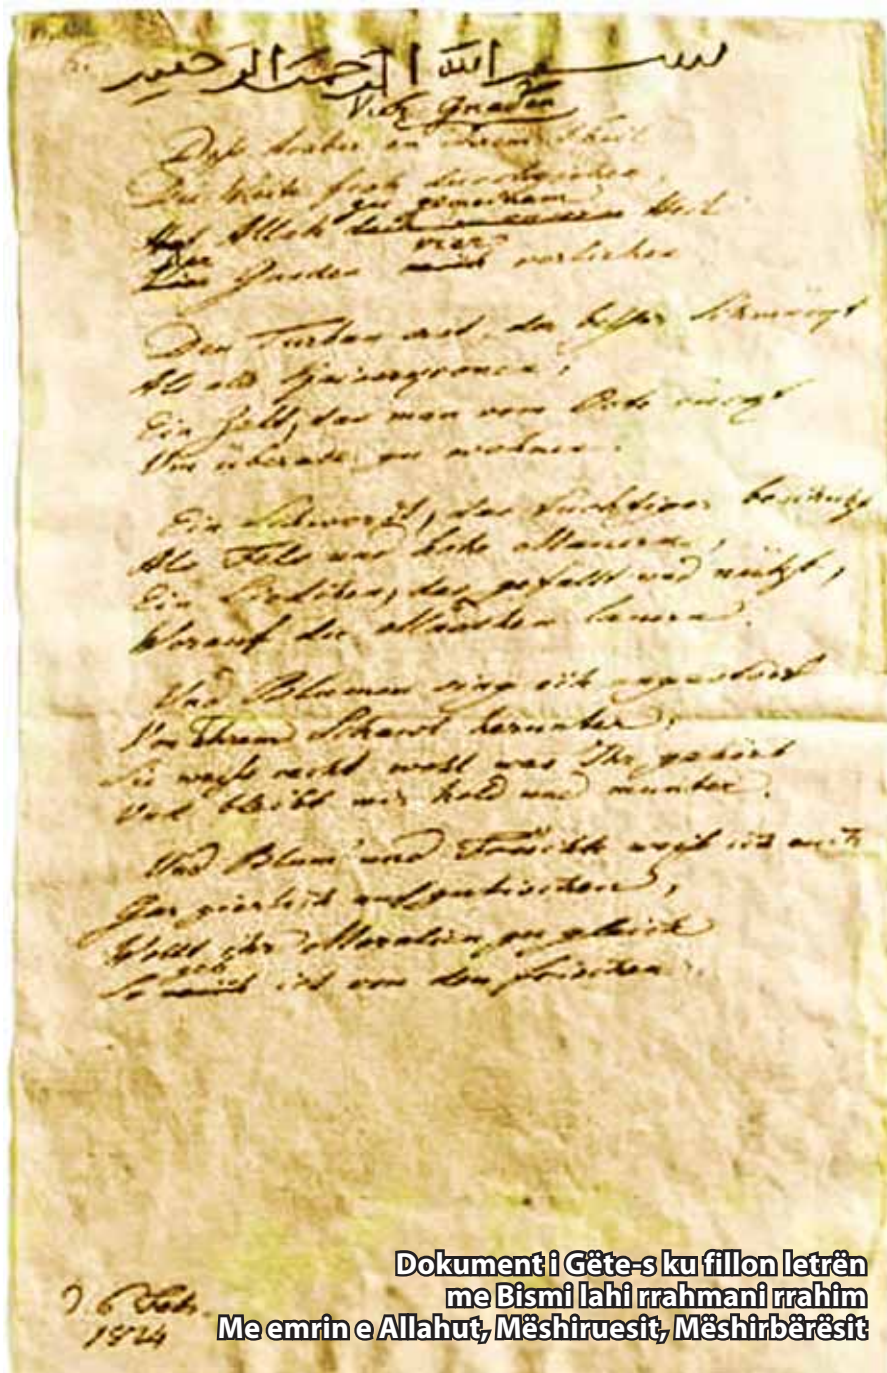 بسم الله الرحمن الرحيم
Vier Gnaden
Daß Araber an ihrem Theil
Die Weite froh durchziehen,
zu gemeinem
Hat Allah Heil
Der vier
Gnaden verliehen
Den Turban erst, der besser schmückt
Als alle Kaiserkronen,
Ein Zelt, das man vom Orte rückt
Um überall zu wohnen.
Ein Schwerdt, das tüchtiger beschützt
Als Fels und hohe Mauern,
Ein Liedchen, das gefällt und nützt,
Worauf die Mädchen lauern.
Und Blumen sing ich ungestört
Von Ihrem Schawl herunter,
Sie weiß recht wohl was Ihr gehört
Und bleibt mir hold und munter.
Und Blum' und Früchte weiß ich euch
Gar zierlich aufzutischen,
Wollt ihr Moralien zugleich
geb
So ich von den frischen.
d. 6 Febr.
1814
Dokument i Gëte-s ku fillon letrën
me Bismi lahi rrahmani rrahim
Me emrin e Allahut, Mëshiruesit, Mëshirbërësit